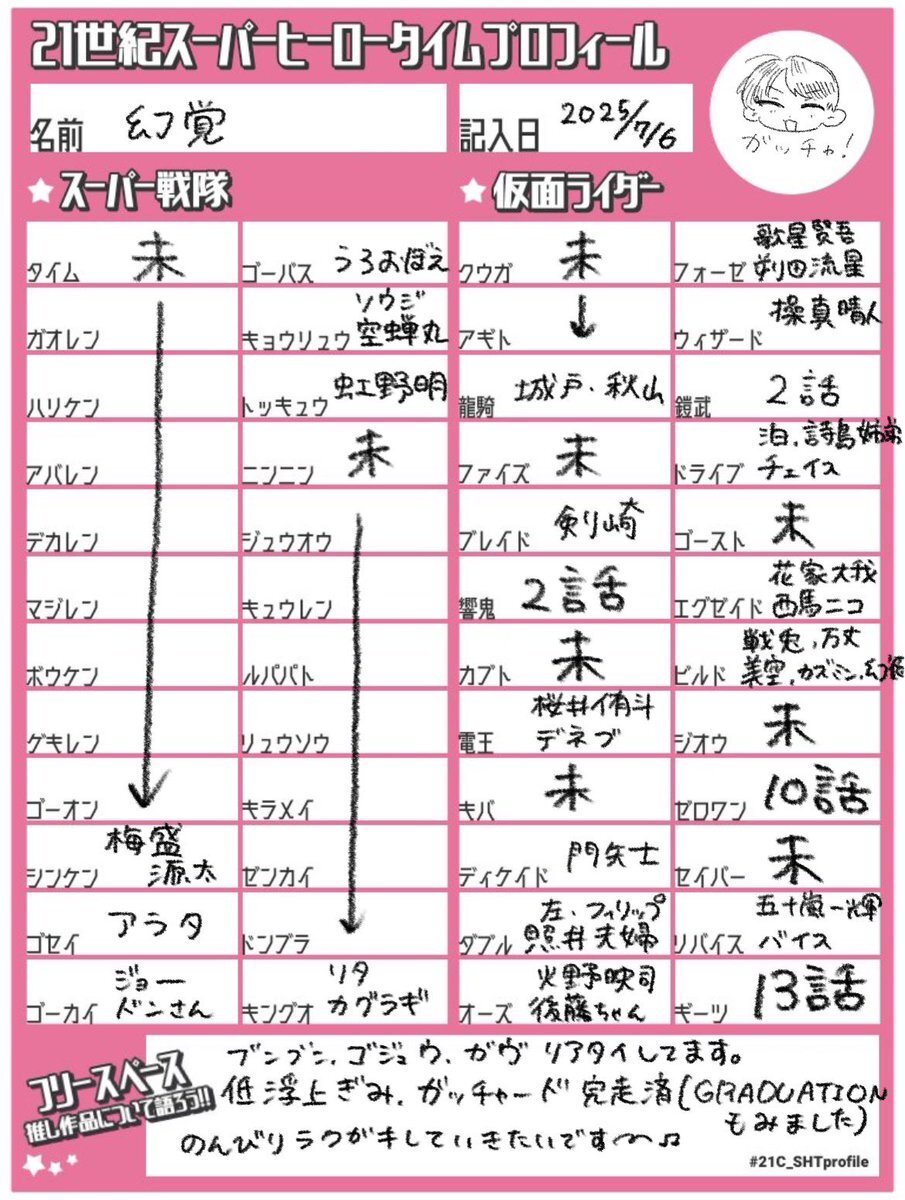 21世紀スーパーヒーロータイムプロフィール
名前 幻覚
記入日 2025/7/6
ガッチャ!
スーパー戦隊
タイム 未
ガオレン
ハリケン
アバレン
デカレン
マジレン
ボウケン
ゲキレン
ゴーオン
シンケン 梅盛
源太
ゴセイ アラタ
ゴーカイ ジョー
ドンさん
ゴーバス うろおぼえ
キョウリュウ ソウジ
空蝉丸
トッキュウ 虹野明
ニンニン 未
ジュウオウ
キュウレン
ルパパト
リュウソウ
キラメイ
ゼンカイ
ドンブラ
キングオ リタ
カグラギ
仮面ライダー
クウガ 未
アギト
龍騎 城戸・秋山
ファイズ 未
ブレイド 剣崎
響鬼 2話
カブト 未
電王 桜井侑斗
デネブ
キバ 未
ディケイド 門矢士
ダブル 左・フィリップ
照井夫婦
オーズ 火野映司
後藤ちゃん
フォーゼ 歌星賢吾
朔田流星
ウィザード 操真晴人
鎧武 2話
ドライブ 泊、詩島姉弟
チェイス
ゴースト 未
エグゼイド 花家大我
西馬ニコ
ビルド 戦兎、万丈
美空、カズミン、幻徳
ジオウ 未
ゼロワン 10話
セイバー 未
リバイス 五十嵐一輝
バイス
ギーツ 13話
フリースペース
推し作品について語ろう!!
ブンブン、ゴジュウ、ガヴ リアタイしてます。
低浮上ぎみ、ガッチャード完走済(GRADUATION
もみました)
のんびりラクガキしていきたいです〜♫
#21C_SHTprofile